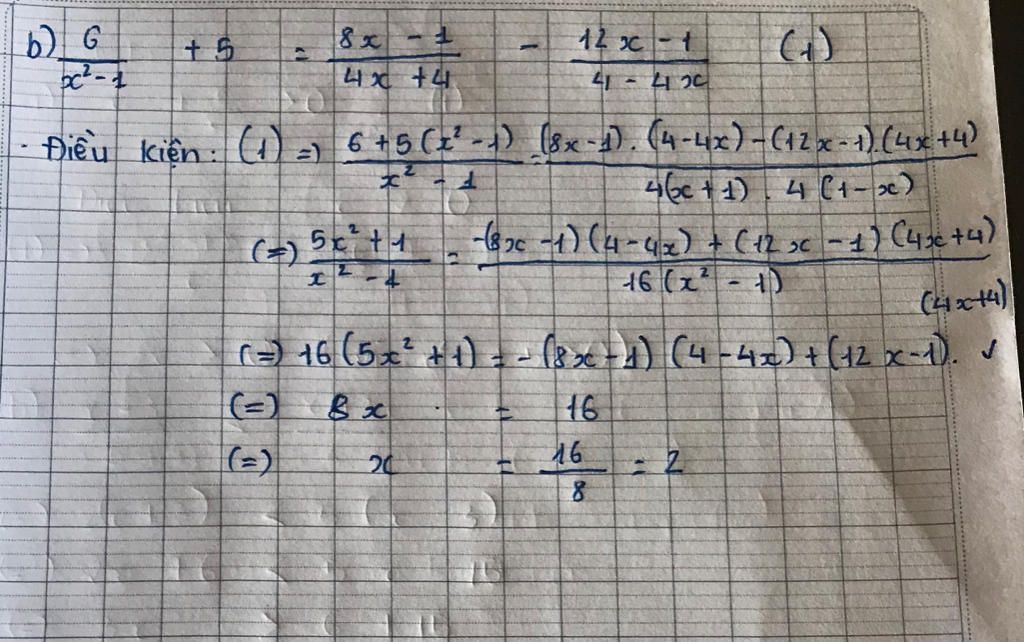 b) 6/(x² - 1) + 5 = (8x - 1)/(4x + 4) - (12x - 1)/(4 - 4x) (1)
. Điều kiện: (1) => (6 + 5(x² - 1))/(x² - 1) = ((8x - 1).(4 - 4x) - (12x - 1).(4x + 4))/(4(x + 1).4(1 - x))
(=) (5x² + 1)/(x² - 1) = (-(8x - 1)(4 - 4x) + (12x - 1)(4x + 4))/(16(x² - 1))
(=) 16(5x² + 1) = -(8x - 1)(4 - 4x) + (12x - 1).(4x + 4) ✓
(=) 8x = 16
(=) x = 16/8 = 2